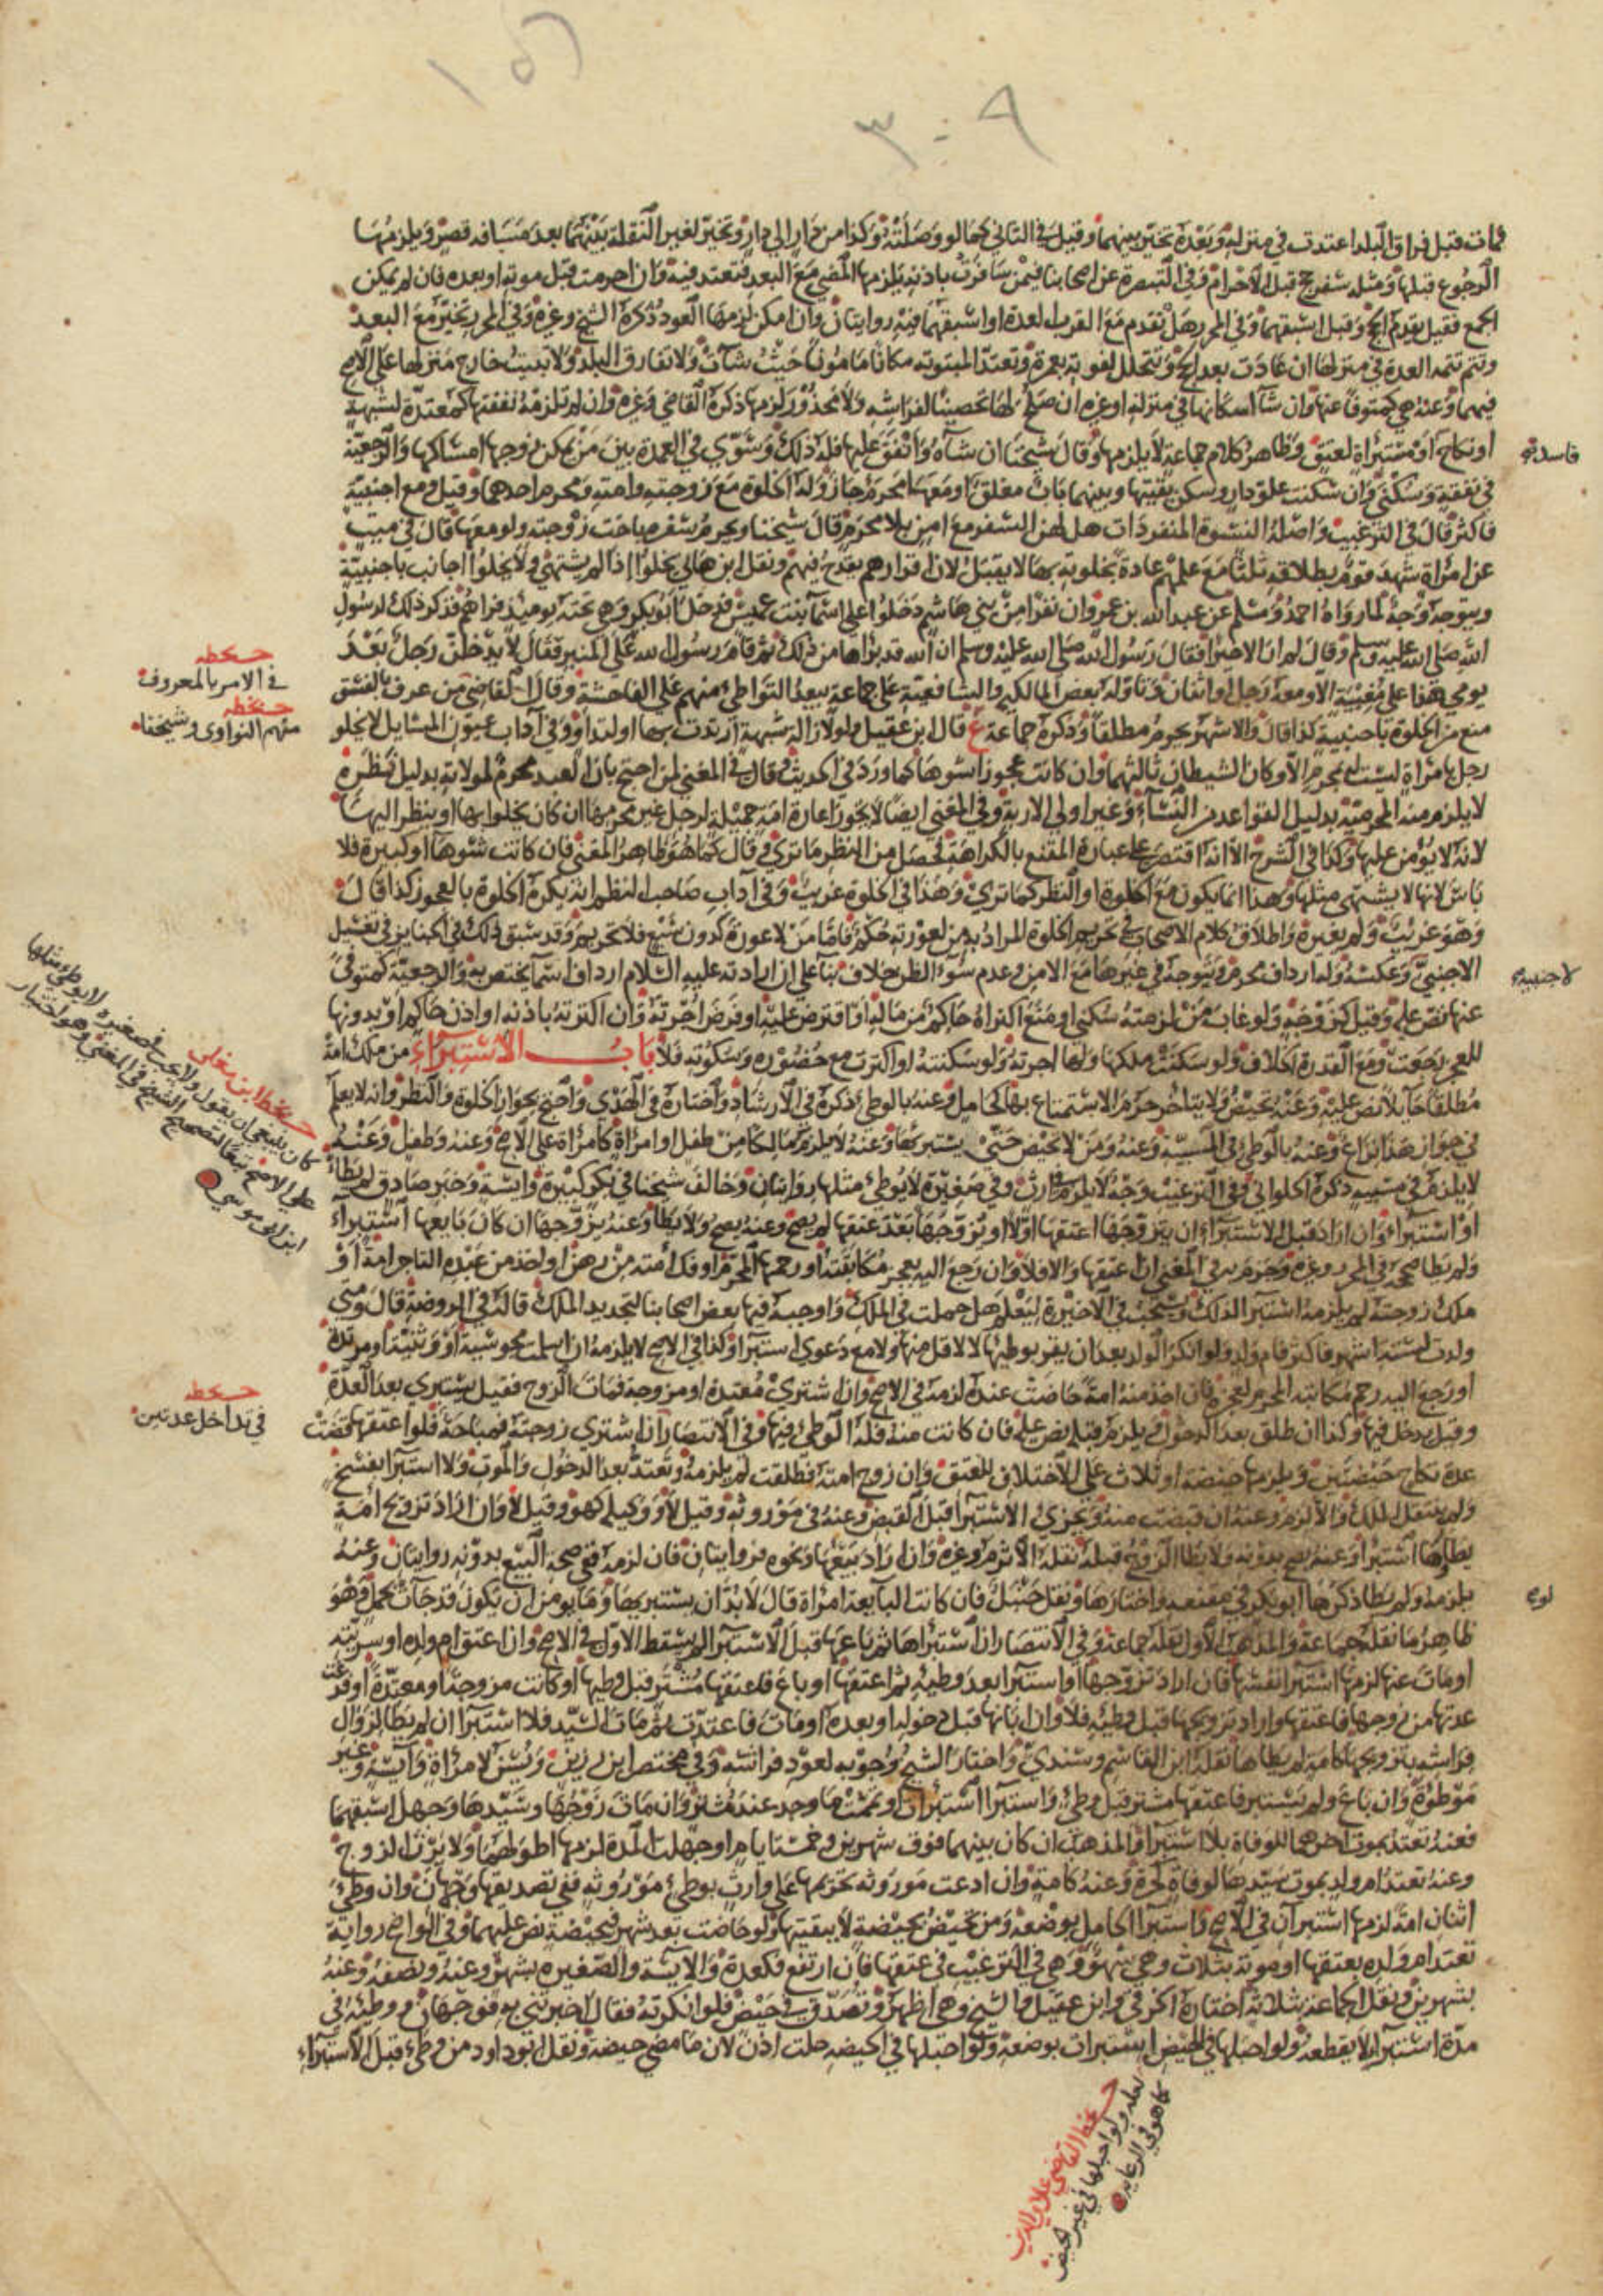 ١٥٦
٩ : ٣
فمات قبل فراق البلد اعتدت في منزله وبعده تخير بينهما وقيل في الثاني كما لو وصلته وكذا من دار إلى دار وتخير لغير النقلة بينهما بعد مسافة قصر ويلزمها
الرجوع قبلها ومثله سفر حج قبل الاحرام وفي التبصرة عن اصحابنا فيمن سافرت باذنه يلزمها المضي مع البعد فتعتد فيه وان احرمت قبل موته او بعده فان لم يمكن
الجمع فقيل يقدم الحج وقيل اسبقهما وفي المحرر هل تقدم مع القرب العدة او اسبقهما فيه روايتان وان امكن لزمها العود ذكره الشيخ وغيره وفي المحرر تخير مع البعد
وتتم تتمة العدة في منزلها ان عادت بعد الحج وتتحلل لفوته بعمرة وتعتد المبتوتة مكانا مامونا حيث شاءت ولا تفارق البلد ولا تبيت خارج منزلها على الاصح
فيهما وعنه هي كمتوفى عنها وان شاء اسكانها في منزله او غيره ان صلح لها تحصينا لفراشه ولا محذور لزمها ذكره القاضي وغيره وان لم تلزمه نفقتها كمعتدة لشبهة
او نكاح او مستبرأة لعتق وظاهر كلام جماعة لا يلزمها وقال شيخنا ان شاء وانفق عليها فله ذلك وسوى في العمدة بين من يمكن زوجها امساكها والرجعية
فاسد
في نفقة وسكنى وان سكنت علو دار وسكن بقيتها وبينهما باب مغلق او معها محرم جاز وله الخلوة مع زوجته وامته ومحرم احدهما وقيل ومع اجنبية
فاكثر قال في الترغيب واصله النسوة المنفردات هل لهن السفر مع امن بلا محرم قال شيخنا ويحرم سفره باخت زوجته ولو معها قال في ميت
عن امراة شهد قوم بطلاقه ثلثا مع علمهم عادة بخلوته بها لا يقبل لان اقرارهم يقدح فيهم ونقل ابن هانئ يخلو اذا لم يشتهى ولا يخلوا اجانب باجنبية
ويتوجه وجه لما رواه احمد ومسلم عن عبد الله بن عمرو ان نفرا من بني هاشم دخلوا على اسما بنت عميس فدخل ابو بكر وهي تحته يومئذ فراهم فذكر ذلك لرسول
الله صلى الله عليه وسلم وقال لم ار الا خيرا فقال رسول الله صلى الله عليه وسلم ان الله قد براها من ذلك ثم قام رسول الله على المنبر فقال لا يدخلن رجل بعد
يومي هذا على مغيبة الا ومعه رجل او اثنان وتاوله بعض المالكية والشافعية على جماعة يبعد التواطئ منهم على الفاحشة وقال القاضي من عرف بالفسق
حـ بخطه
في الامر بالمعروف
منع من الخلوة باجنبية كذا قال والاشهر يحرم مطلقا وذكره جماعة ع قال ابن عقيل ولو لازالة شبهة ارتدت بها او لتداو وفي آداب عيون المسايل لا يخلو
حـ بخطه
منهم النواوى وشيخنا
رجل بامراة ليست له بمحرم الا وكان الشيطان ثالثهما وان كانت عجوزا شوها كما ورد في الحديث وقال في المغني لمن احتج بان العبد محرم لمولاته بدليل نظره
لا يلزم منه المحرمية بدليل القواعد من النساء وغير اولي الاربة وفي المغني ايضا لا يجوز اعارة امة جميلة لرجل غير محرمها ان كان يخلو بها او ينظر اليها
لانه لا يؤمن عليها وكذا في الشرح الا انه اقتصر على عبارة المقنع بالكراهة فحصل من النظر ما ترى وقال كما هو ظاهر المغني فان كانت شوها او كبيرة فلا
باس لانها لا يشتهى مثلها وهذا انما يكون مع الخلوة او النظر كما ترى وهذا في الخلوة غريب وفي آداب صاحب النظم انه يكره الخلوة بالعجوز كذا قال
وهو غريب ولم يعزه واطلاق كلام الاصحاب في تحريم الخلوة المراد به من لعورته حكم فاما من لا عورة له كدون سبع فلا تحريم وقد سبق ذلك في الجنايز في تغسيل
الاجنبي وعكسه وله ارداف محرم ويتوجه في غيرها مع الامن وعدم سوء الظن خلاف بنا على ان ارادته عليه السلام ارداف اسما يختص به والرجعية كمتوفى
لاجنبية
عنها نص عليه وقيل كزوجة ولو غاب من لزمته سكنى او منعه اكتراه حاكم من ماله او اقترض عليه او فرض اجرته وان اكترته باذنه او اذن حاكم او بدونها
للعجز رجعت ومع القدرة الخلاف ولو سكنت ملكها فلها اجرته ولو سكنته او اكترت مع حضوره وسكوته فلا باب الاستبراء من ملك امة
مطلقا حائلا نص عليه وعنه تحيض ولا يتاخر حرم الاستمتاع بها كحامل وعنه بالوطئ ذكره في الارشاد واختاره في الهدى واحتج بجواز الخلوة والنظر وانه لا يعلم
في جواز هذا نزاعا وعنه بالوطئ في المسبية وعنه ومن لا تحيض حتى يستبرئها وعنه لا يلزم مالكا من طفل او امراة كامراة على الاصح وعنه وطفل وعنه
لا يلزمه في مسبية ذكره الحلواني وفي الترغيب وجه لا يلزم في ارث وفي صغيرة لا يوطئ مثلها روايتان وخالف شيخنا في بكر كبيرة وايسة وخبر صادق لم يطأ
حـ بخط ابن مغلى
كان ينبغي ان يقول ولا يجب في صغيرة لا يوطئ مثلها
على الاصح تبعا لتصحيح الشيخ في المغني وهو اختيار
ابن ابى موسى
او استبراء وان اراد قبل الاستبراء ان يتزوجها اعتقها اولا او يزوجها بعد عتقها لم يصح وعنه يصح ولا يطا وعنه يزوجها ان كان بايعها استبراء
ولم يطا صححه في المحرر وغيره وجزم به في المغني ان اعتقها والا فلا وان رجع اليه بعجز مكاتبته او رحمها المحرم او فك امته من رهن او اخذ من عبده التاجر امة او
ملك زوجته لم يلزمه استبرا لذلك ويستحب في الاخيرة ليعلم هل حملت في الملك واوجبه فيها بعض اصحابنا لتجديد الملك قاله في الروضة قال ومتى
ولدت لستة اشهر فاكثر فام ولد ولو انكر الولد بعد ان يقر بوطئها لا لاقل منها ولا مع دعوى استبرا وكذا في الاصح لا يلزمه ان اسلمت مجوسية او وثنية او مرتدة
او رجع اليه رحم مكاتبه المحرم لعجزه فان اخذ منه امة حاضت عنده لزمه في الاصح وان اشترى معتدة او مزوجة فمات الزوج فقيل يستبري بعد العدة
حـ بخطه
في تداخل عدتين
وقيل يدخل فيها وكذا ان طلق بعد الدخول ويلزم قبله نص عليه فان كانت منه فله الوطئ فيها وفي الانتصار ان اشترى زوجته فمباحة فلو اعتقها قضت
عدة نكاح حيضتين ويلزمها حيضة او ثلاث على الاختلاف للعتق وان زوج امته فطلقت لم يلزمه وتعتد بعد الدخول والموت ولا استبرا بفسخ
ولم ينتقل الملك والا لزم وعنه ان قبضت منه ويجزئ الاستبرا قبل القبض وعنه في موروثه وقيل لا ووكيله كهو وقيل لا وان اراد تزويج امة
يطاها استبرا وعنه يصح بدونه ولا يطا الزوج قبله نقله الاثرم وغيره وان اراد بيعها ونحوه فروايتان فان لزمه ففي صحة البيع بدونه روايتان وعنه
يلزمه ولم يطا ذكرها ابو بكر في مقنعه واختارها ونقل حنبل فان كانت البايعة امراة قال لا بد ان يستبريها وما يؤمن ان يكون قد جاءت بحمل وهو
لوع
ظاهر ما نقله جماعة والمذهب الاول نقله جماعة وفي الانتصار ان استبراها ثم باعها قبل الاستبرا لم يسقط الاول في الاصح وان اعتق ام ولده او سريته
او مات عنها لزمها استبرا نفسها فان اراد تزوجها او استبرا بعد وطئه ثم اعتقها او باع فاعتقها مشتر قبل وطئها او كانت مزوجة او معتدة او فرغت
عدتها من زوجها فاعتقها واراد تزويجها قبل وطئه فلا وان ابانها قبل دخوله او بعده او مات فاعتدت ثم مات السيد فلا استبرا ان لم يطا لزوال
فراشه بتزويجها كامة لم يطاها نقله ابن القاسم وسندي واختار الشيخ وجوبه لعود فراشه وفي مختصر ابن رزين ويسن لامراة وآيسة وغير
موطوة وان باع ولم يستبر فاعتقها مشتر قبل وطئ واستبرا استبرات او تممت ما وجد عند مشتر وان مات زوجها وسيدها وجهل اسبقهما
فعنه تعتد بموت اخرهما للوفاة بلا استبرا والمذهب ان كان بينهما فوق شهرين وخمسة ايام او جهلت المدة لزمها اطولهما ولا يرث الزوج
وعنه تعتد ام ولد بموت سيدها لوفاة كحرة وعنه كامة وان ادعت موروثة تحريمها على وارث بوطئ موروثه ففي تصديقها وجهان وان وطئ
اثنان امة لزمها استبرآن في الاصح واستبرا الحامل بوضعه ومن تحيض بحيضة لا ببقيتها ولو حاضت بعد شهر فبحيضة نص عليهما وفي الواضح رواية
تعتد ام ولده بعتقها او موته بثلاث وهي سهو وهي في الترغيب في عتقها فان ارتفع فكعدة والايسة والصغيرة بشهر وعنه ونصفه وعنه
بشهرين ونقل الجماعة بثلاثة اختاره الخرقي وابن عقيل والشيخ وهي اظهر وتصدق في حيض فلو انكرته فقال اخبرتني به فوجهان ووطئه في
مدة استبرآء لا يقطعه ولو احبلها في الحيض استبرات بوضعه ولو احبلها في الحيضة حلت اذن لان ما مضى حيضة ونقل ابو داود من وطئ قبل الاستبراء
حـ بخط القاضي علاء الدين
لعله ولو احبلها في غير الحيض
كما هو في الرعاية